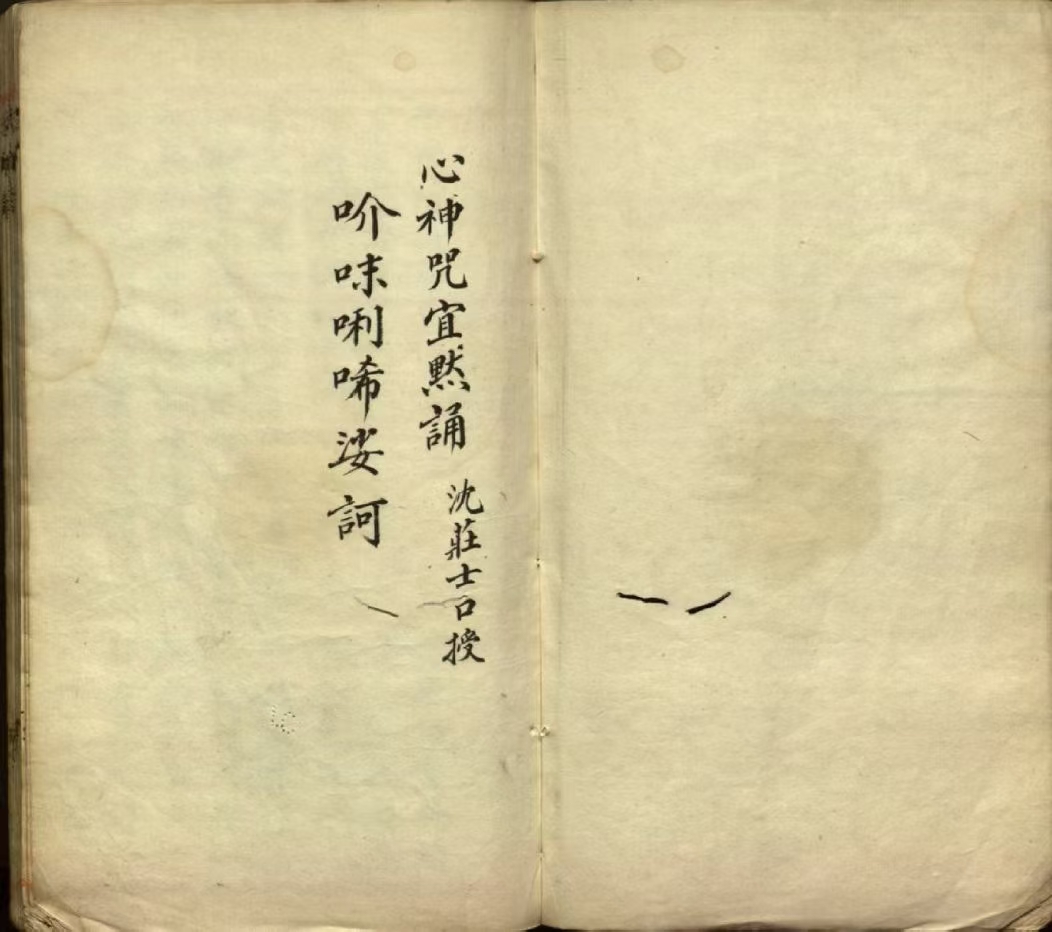 心神咒宜默誦 沈莊士口授
吤味唎唏娑訶